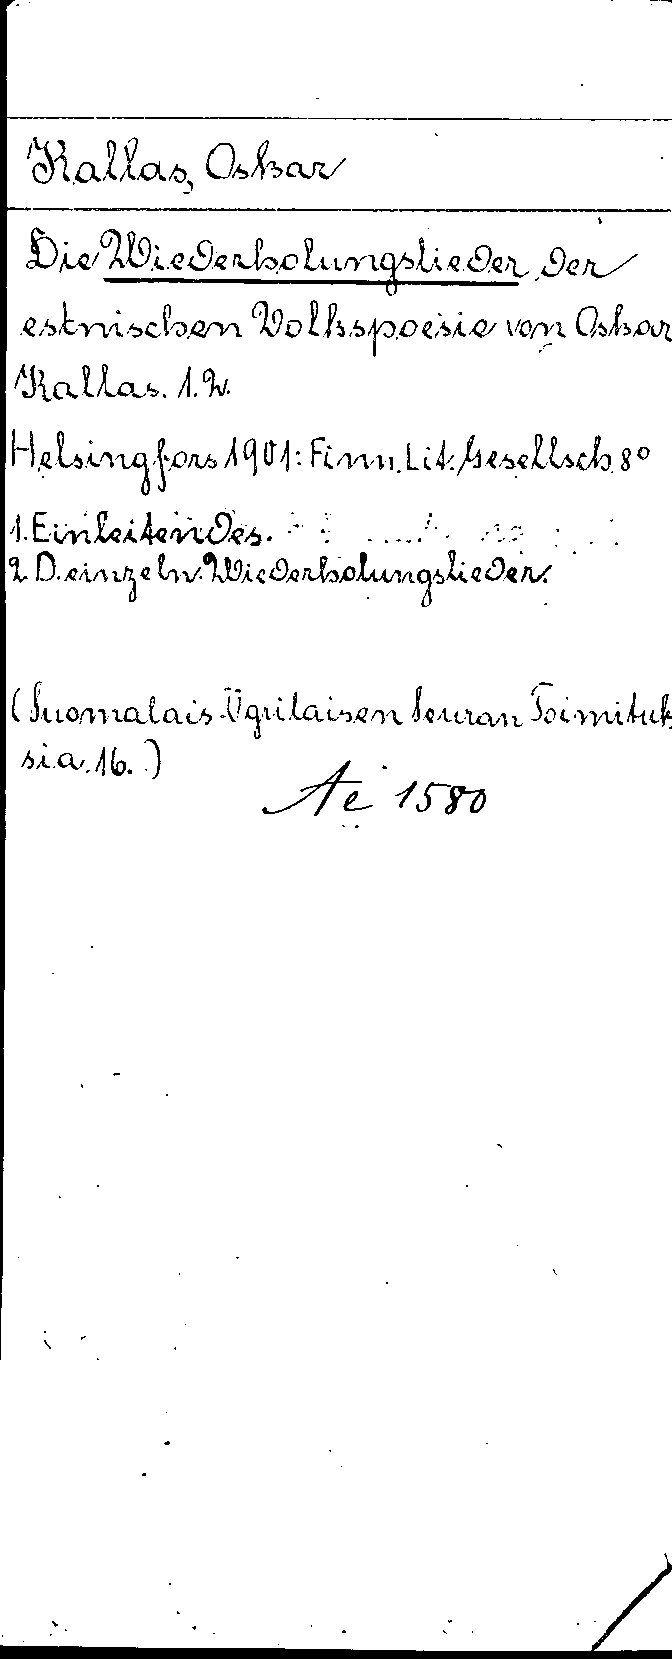 Kallas, Oskar
Die Wiederholungslieder der
estnischen Volkspoesie von Oskar
Kallas. 1.2.
Helsingfors 1901: Finn. Lit. Gesellsch. 8°
1. Einleitendes.
2. D. einzeln. Wiederholungslieder.
(Suomalais-Ugrilaisen Seuran Toimituk
sia. 16.)
Ae 1580